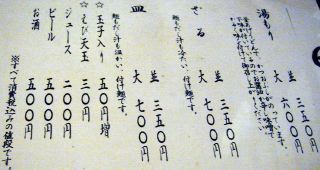 湯もり
並 三五〇円
大 六〇〇円
ざる
麺もだし汁も冷たい、付け麺です。
並 三五〇円
大 七〇〇円
皿
麺もだし汁も温かい、付け麺です。
並 三五〇円
大 七〇〇円
☆玉子入り 五〇円増
☆えび天玉 三〇〇円
ジュース 二〇〇円
ビール 五〇〇円
お酒 五〇〇円
※すべて消費税込みの値段です。